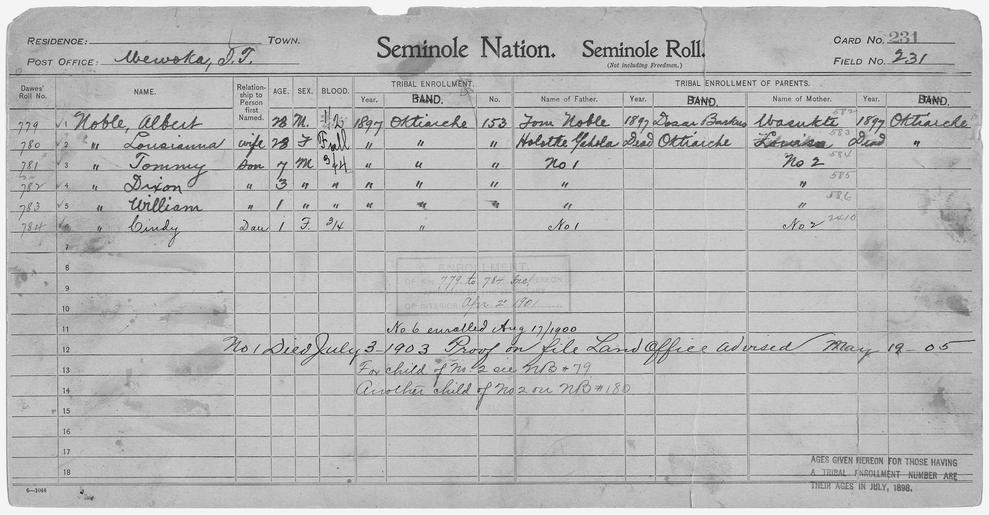 RESIDENCE: TOWN. Seminole Nation. Seminole Roll. CARD NO. 231
POST OFFICE: Wewoka, I.T. (Not including Freedmen.) FIELD NO. 231
Dawes' Roll No. NAME. Relationship to Person first Named. AGE. SEX. BLOOD. TRIBAL ENROLLMENT. Year. BAND. No. TRIBAL ENROLLMENT OF PARENTS. Name of Father. Year. BAND. Name of Mother. Year. BAND.
779 1 Noble, Albert 28 M. 1897 Oktiarche 153 Tom Noble 1897 Dosar Barkus Wasukte 582 1897 Oktiarche
780 2 " Lousianna wife 28 F Full " " Holotke Yahola Dead Oktiarche Louisa 583 Dead "
781 3 " Tommy Son 7 M 3/4 " " " No 1 No 2 584
782 4 " Dixon " 3 " " " " " " " 585
783 5 " William " 1 " " " " " " " 586
784 6 " Cindy Dau 1 F. 3/4 " No 1 No 2 2410
7
8
ENROLLMENT
9 779 to 784 Inc
10 Apr 2 1901
11 No 6 enrolled Aug 17/1900
12 No 1 Died July 3-1903 Proof on file Land Office advised May 19-05
13 For child of No 2 see NB #79
14 Another child of No 2 on NB #180
15
16
17
18
AGES GIVEN HEREON FOR THOSE HAVING
A TRIBAL ENROLLMENT NUMBER ARE
THEIR AGES IN JULY, 1898.
6—1044